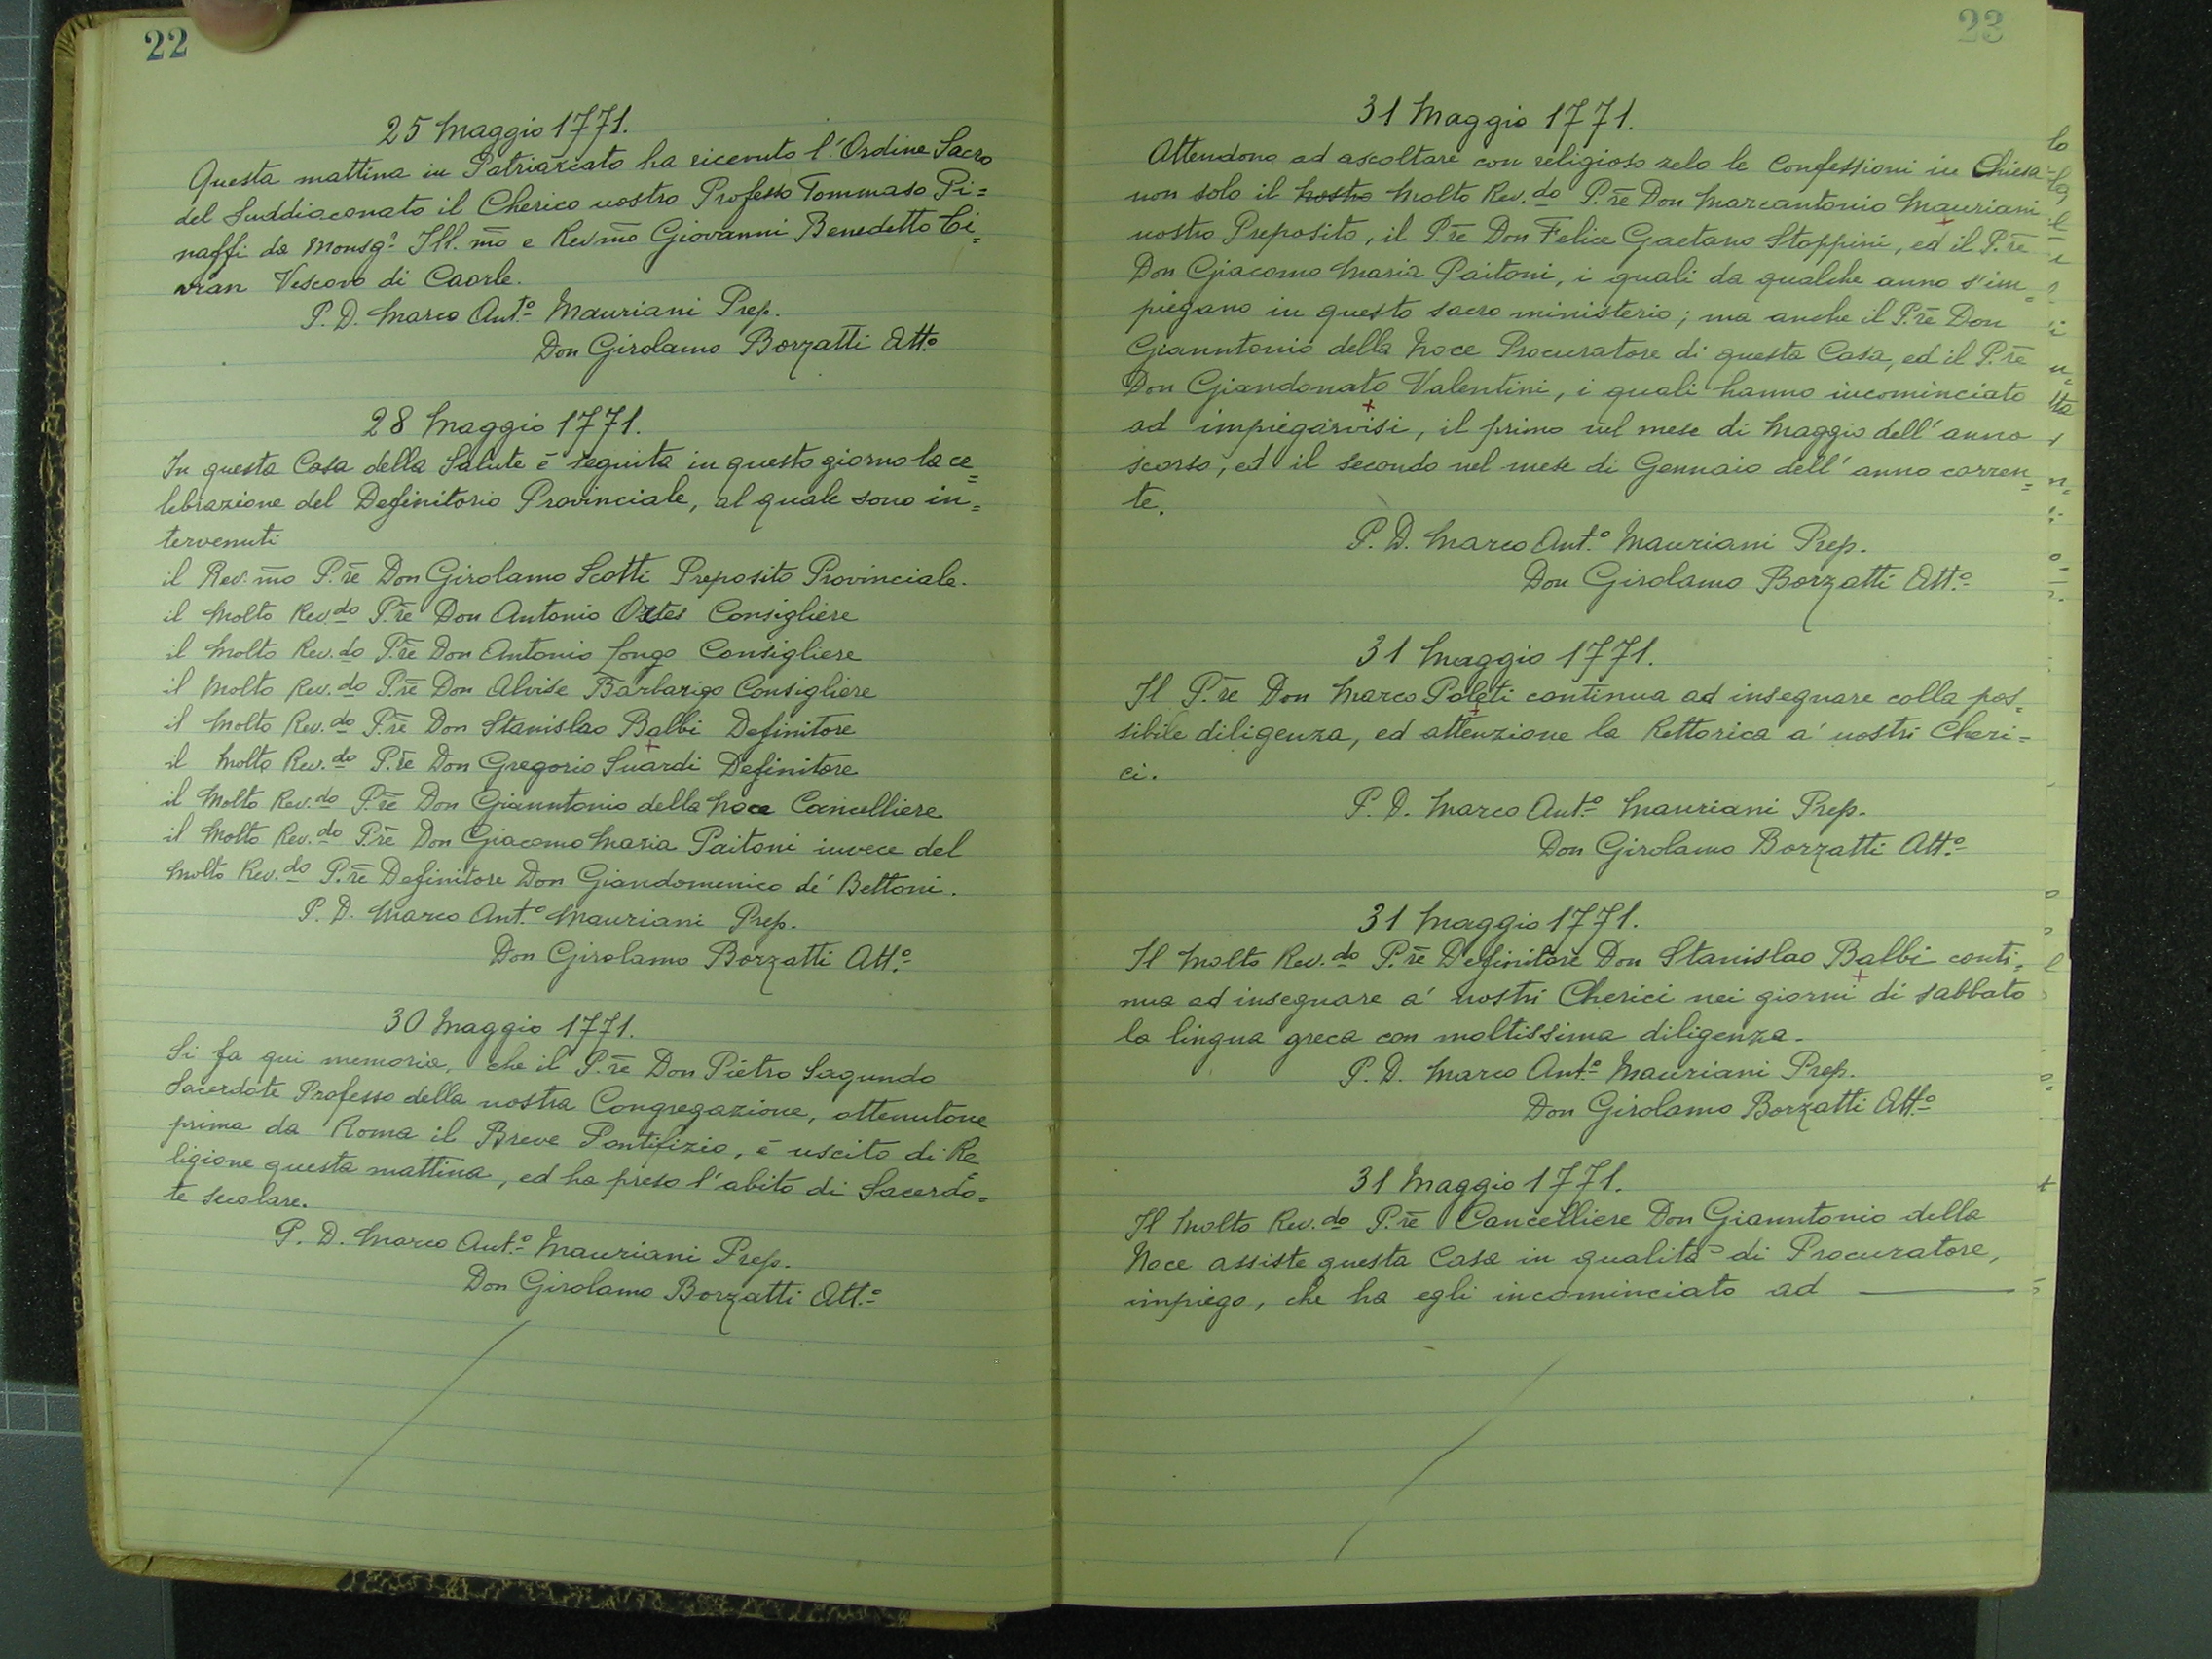 22
25 Maggio 1771.
Questa mattina in Patriarcato ha ricevuto l'Ordine Sacro
del Suddiaconato il Cherico nostro Professo Tommaso Pi=
naffi da Monsg.r Ill.mo e Rev.mo Giovanni Benedetto Ci=
vran Vescovo di Caorle.
P. D. Marco Ant.o Mauriani Prep.
Don Girolamo Borzatti Att.o
28 Maggio 1771.
In questa Casa della Salute è seguita in questo giorno la ce=
lebrazione del Definitorio Provinciale, al quale sono in=
tervenuti
il Rev.mo P.re Don Girolamo Scotti Preposito Provinciale.
il Molto Rev.do P.re Don Antonio Ortes Consigliere
il Molto Rev.do P.re Don Antonio Longo Consigliere
il Molto Rev.do P.re Don Alvise Barbarigo Consigliere
il Molto Rev.do P.re Don Stanislao Balbi Definitore
il Molto Rev.do P.re Don Gregorio Suardi Definitore
il Molto Rev.do P.re Don Gianntonio della Noce Cancelliere
il Molto Rev.do P.re Don Giacomo Maria Paitoni invece del
Molto Rev.do P.re Definitore Don Giandomenico de' Bettoni.
P. D. Marco Ant.o Mauriani Prep.
Don Girolamo Borzatti Att.o
30 Maggio 1771.
Si fa qui memoria, che il P.re Don Pietro Sagundo
Sacerdote Professo della nostra Congregazione, ottenutone
prima da Roma il Breve Pontifizio, è uscito di Re=
ligione questa mattina, ed ha preso l'abito di Sacerdo=
te secolare.
P. D. Marco Ant.o Mauriani Prep.
Don Girolamo Borzatti Att.o
23
31 Maggio 1771.
Attendono ad ascoltare con religioso zelo le Confessioni in Chiesa
non solo il nostro Molto Rev.do P.re Don Marcantonio Mauriani
nostro Preposito, il P.re Don Felice Gaetano Stoppini, ed il P.re
Don Giacomo Maria Paitoni, i quali da qualche anno s'im=
piegano in questo sacro ministerio; ma anche il P.re Don
Gianntonio della Noce Procuratore di questa Casa, ed il P.re
Don Giandonato Valentini, i quali hanno incominciato
ad impiegarvisi, il primo nel mese di Maggio dell'anno
scorso, ed il secondo nel mese di Gennaio dell'anno corren=
te.
P. D. Marco Ant.o Mauriani Prep.
Don Girolamo Borzatti Att.o
31 Maggio 1771.
Il P.re Don Marco Poleti continua ad insegnare colla pos=
sibile diligenza, ed attenzione la Rettorica a' nostri Cheri=
ci.
P. D. Marco Ant.o Mauriani Prep.
Don Girolamo Borzatti Att.o
31 Maggio 1771.
Il Molto Rev.do P.re Definitore Don Stanislao Balbi conti=
nua ad insegnare a' nostri Cherici nei giorni di sabbato
la lingua greca con moltissima diligenza.
P. D. Marco Ant.o Mauriani Prep.
Don Girolamo Borzatti Att.o
31 Maggio 1771.
Il Molto Rev.do P.re Cancelliere Don Gianntonio della
Noce assiste questa Casa in qualità di Procuratore,
impiego, che ha egli incominciato ad